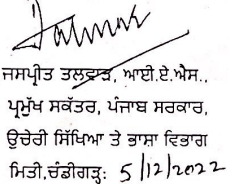 ਜਸਪ੍ਰੀਤ ਤਲਵਾੜ, ਆਈ.ਏ.ਐਸ.,
ਪ੍ਰਮੁੱਖ ਸਕੱਤਰ, ਪੰਜਾਬ ਸਰਕਾਰ,
ਉਚੇਰੀ ਸਿੱਖਿਆ ਤੇ ਭਾਸ਼ਾ ਵਿਭਾਗ
ਮਿਤੀ,ਚੰਡੀਗੜ੍ਹ: 5/12/2022